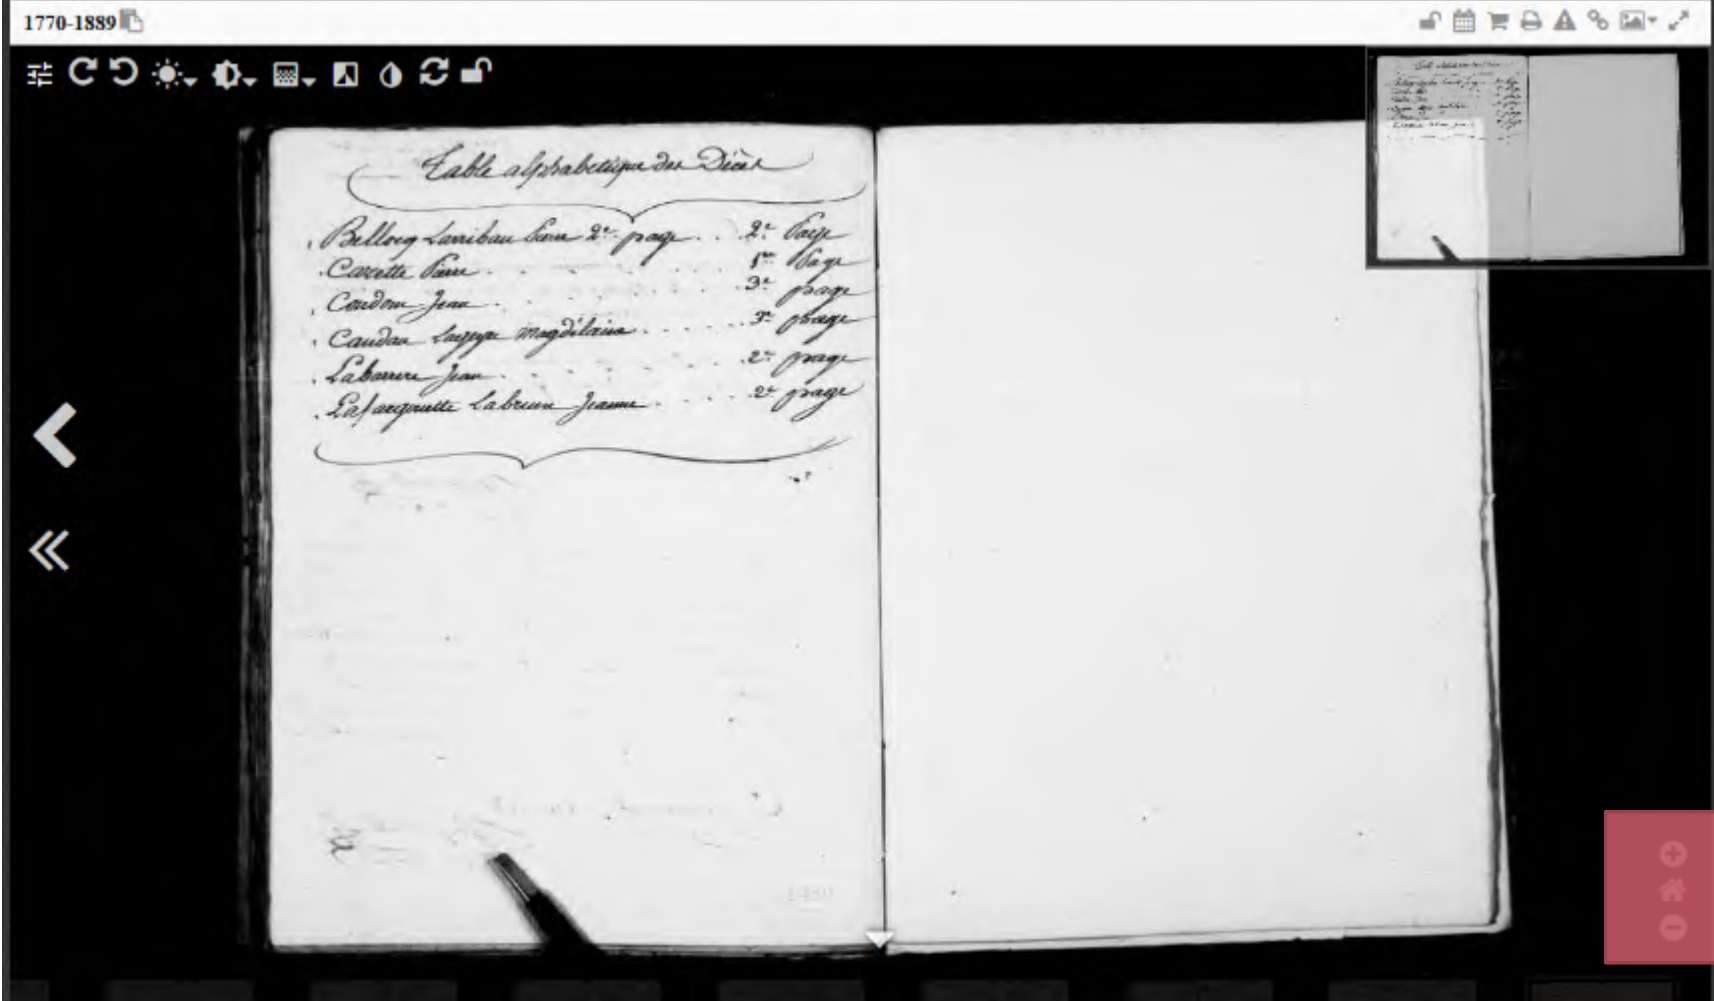 1770-1889
Table alphabetique des Décès
Bellocq Larribau 2e page . . 2e Page
Cazette Pierre . . . . 1re Page
Condom Jean . . . . 3e page
Caudau magdelaine . . . . 3e page
Labarrere Jean . . . . 2e page
Lafargouette Labrun Jeanne . . . . 2e page